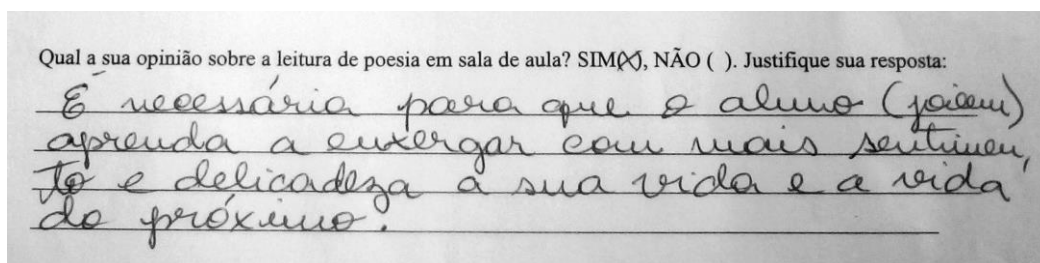 Qual a sua opinião sobre a leitura de poesia em sala de aula? SIM(X), NÃO ( ). Justifique sua resposta:
É necessária para que o aluno (joicem)
aprenda a enxergar com mais sentimen,
to e delicadeza a sua vida e a vida
do próximo.